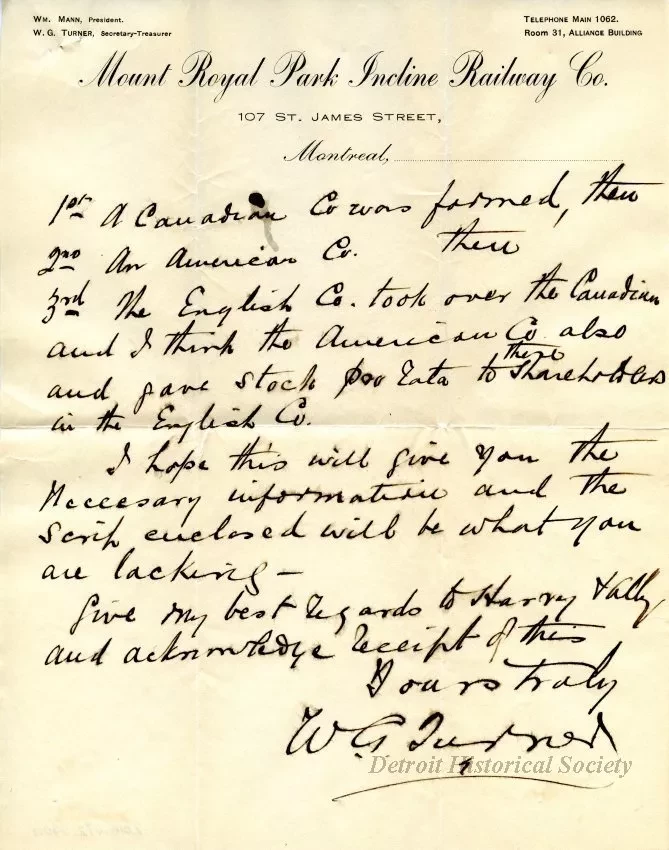 WM. MANN, President.
W. G. TURNER, Secretary-Treasurer
TELEPHONE MAIN 1062.
ROOM 31, ALLIANCE BUILDING
Mount Royal Park Incline Railway Co.
107 ST. JAMES STREET,
Montreal,
1st A Canadian Co was formed, then
2nd An American Co. then
3rd The English Co. took over the Canadian
and I think the American Co also
and gave stock pro rata to these shareholders
in the English Co.
I hope this will give you the
Neccesary information and the
Scrip enclosed will be what you
are lacking -
Give my best regards to Harry & all
and acknowledge receipt of this
Yours truly
W. G. Turner
Detroit Historical Society